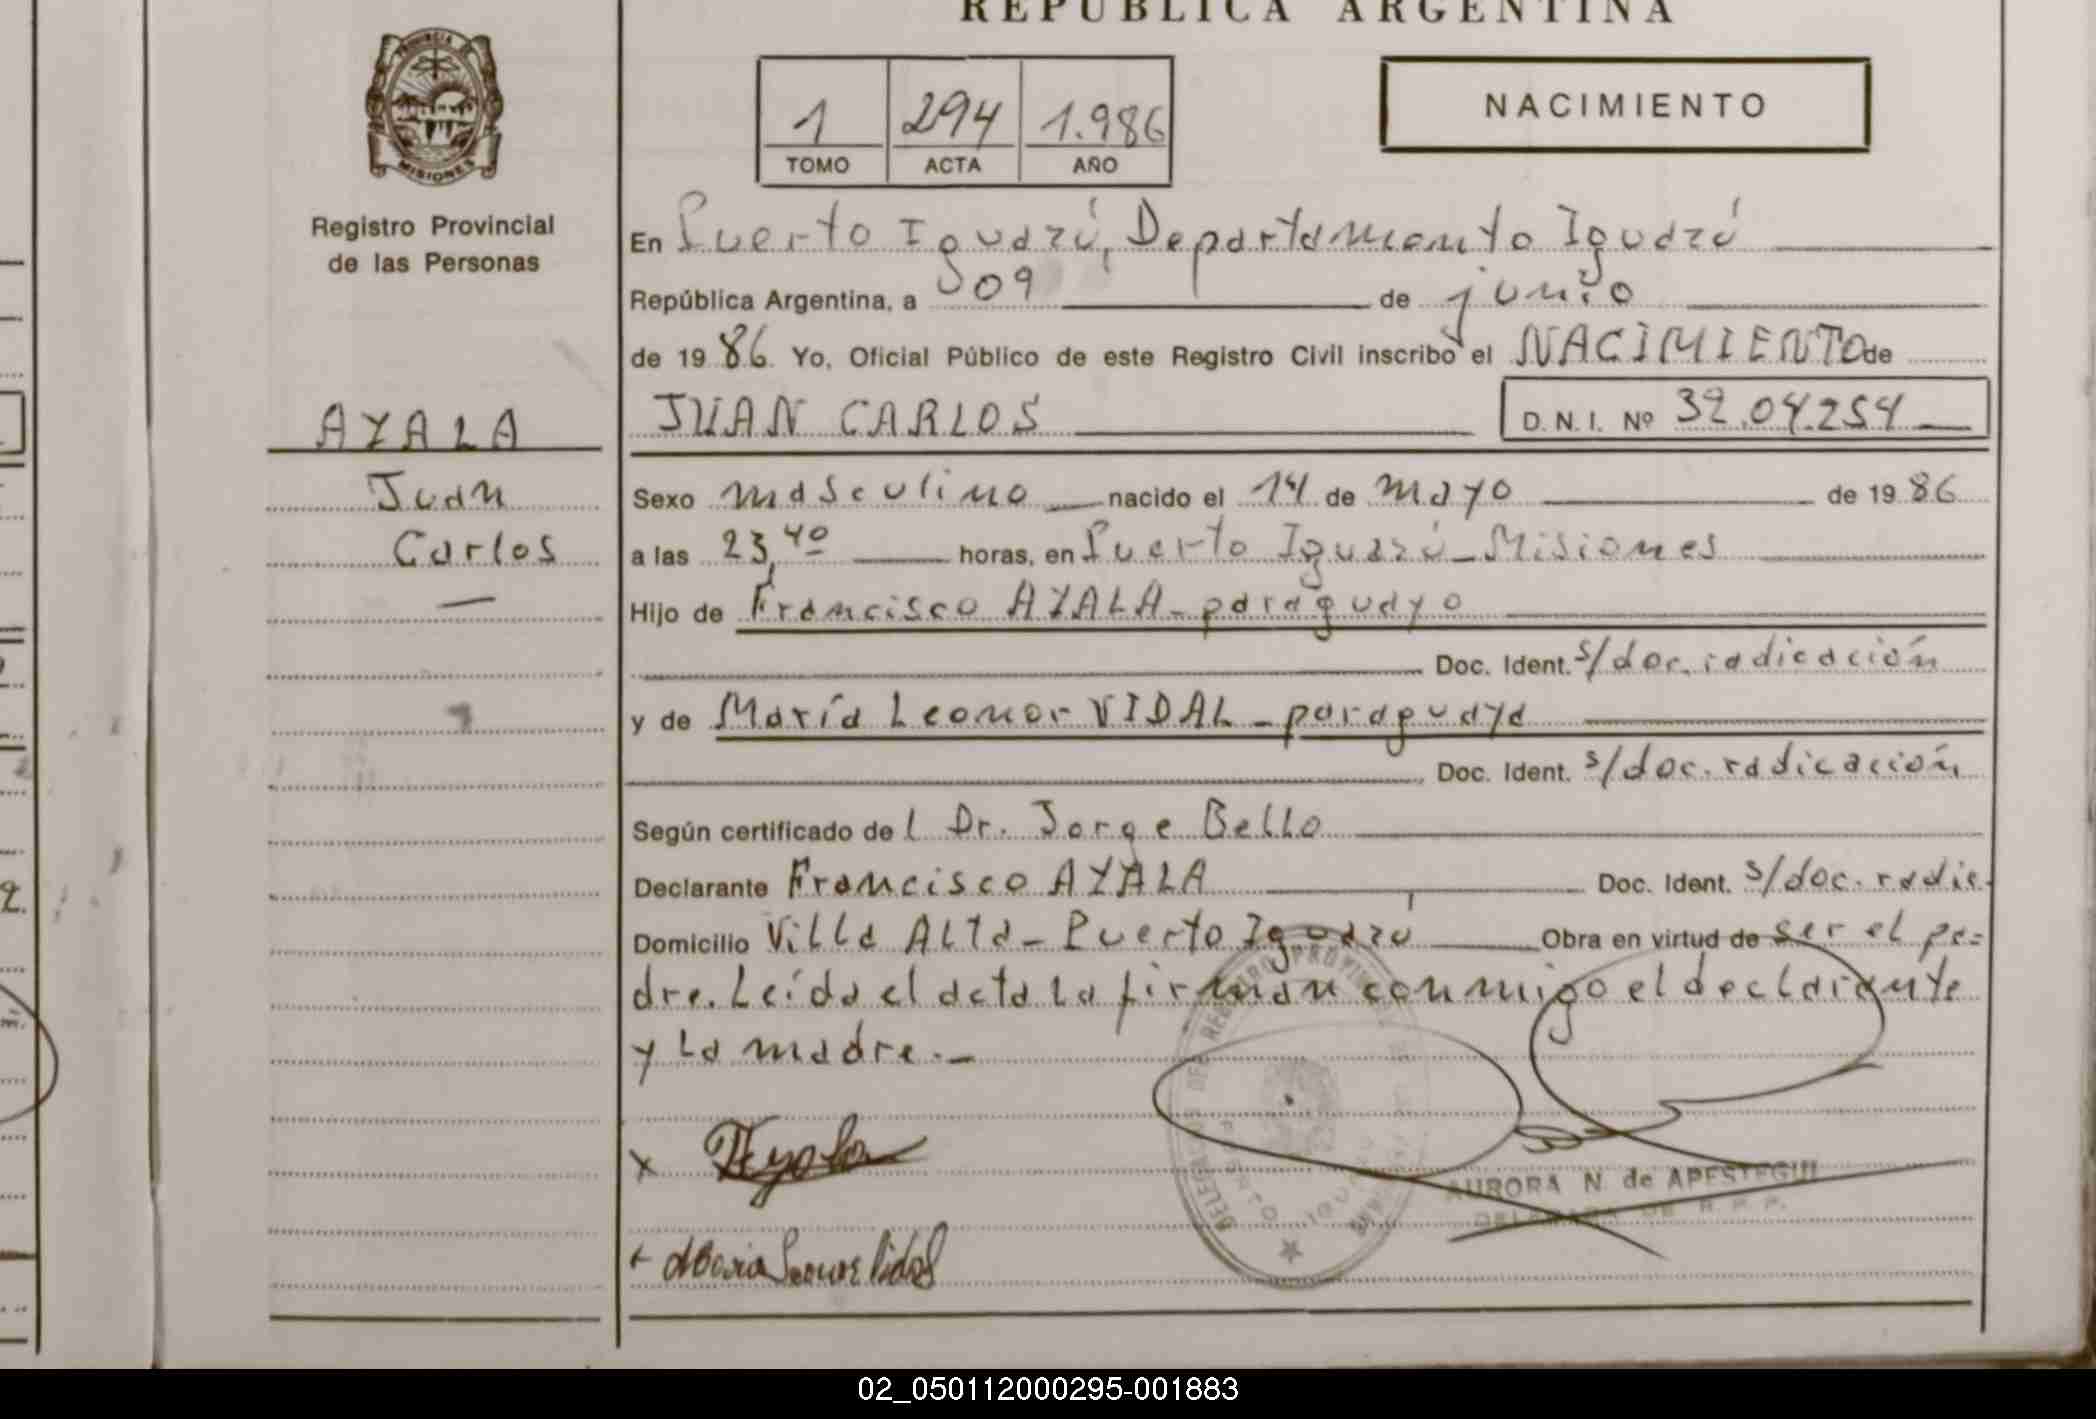 REPUBLICA ARGENTINA
PROVINCIA DE
MISIONES
Registro Provincial
de las Personas
1 294 1.986
TOMO ACTA AÑO
NACIMIENTO
En Puerto Iguazú, Departamento Iguazú
República Argentina, a 09 de junio
de 19 86. Yo, Oficial Público de este Registro Civil inscribo el NACIMIENTO de
AYALA
JUAN CARLOS
D. N. I. Nº 32.04.254
Juan
Sexo masculino nacido el 14 de mayo de 19 86
Carlos
a las 23,40 horas, en Puerto Iguazú - Misiones
Hijo de Francisco AYALA - paraguayo
Doc. Ident. s/doc. radicación
y de María Leonor VIDAL - paraguaya
Doc. Ident. s/doc. radicación
Según certificado de l Dr. Jorge Bello
Declarante Francisco AYALA Doc. Ident. s/doc. radic.
Domicilio Villa Alta - Puerto Iguazú Obra en virtud de ser el pa-
dre. Leída el acta la firman conmigo el declarante
y la madre. -
x
AURORA N. de APESTEGUI
DELEGADA DE R. P. P.
María Leonor Vidal
02_050112000295-001883